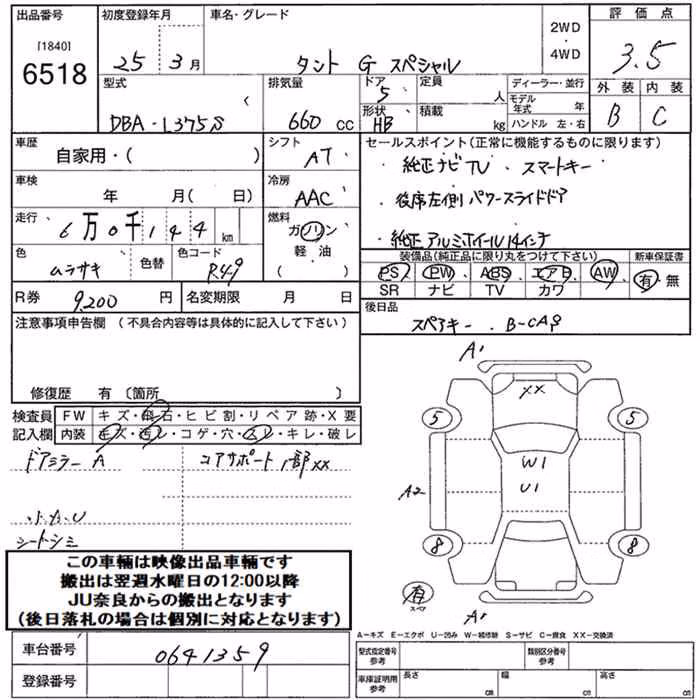 出品番号 初度登録年月 車名・グレード 2WD ・ 4WD 評価点
[1840]
6518 25年3月 タント G スペシャル 3.5
型式 排気量 ドア 定員 ディーラー・並行 外装 内装
DBA-L375S 660cc 5 人 モデル年式 年 B C
形状 HB 積載 kg ハンドル 左・右
車歴 シフト セールスポイント(正常に機能するものに限ります)
自家用・( ) AT ・純正ナビTV ・スマートキー
車検 冷房
年 月( 日) AAC ・後席左側パワースライドドア
走行 燃料
6万0千144km ガソリン ・純正アルミホイール14インチ
色 色替 色コード 軽油 装備品(純正品に限り丸をつけて下さい) 新車保証書
ムラサキ R49 ( ) PS PW ABS エアB AW 有・無
SR ナビ TV カワ
R券 9,200円 名変期限 月 日 後日品
スペアキー、B-CAS
注意事項申告欄 (不具合内容等は具体的に記入して下さい)
修復歴 有(箇所 )
検査員 FW キズ・飛石・ヒビ割・リペア跡・X要
記入欄 内装 キズ・汚レ・コゲ・穴・スレ・キレ・破レ
ドアミラーA コアサポート 部XX
シートシミ
A1
XX
5 5
W1
A2 U1
8 8
有
スペア
A1
この車輌は映像出品車輌です
搬出は翌週水曜日の12:00以降
JU奈良からの搬出となります
(後日落札の場合は個別に対応となります)
A-キズ E-エクボ U-凹み W-補修跡 S-サビ C-腐食 XX-交換済
車台番号 0641359 型式指定番号 参考 類別区分番号 参考
登録番号 車庫証明用 参考 長さ cm 幅 cm 高さ cm